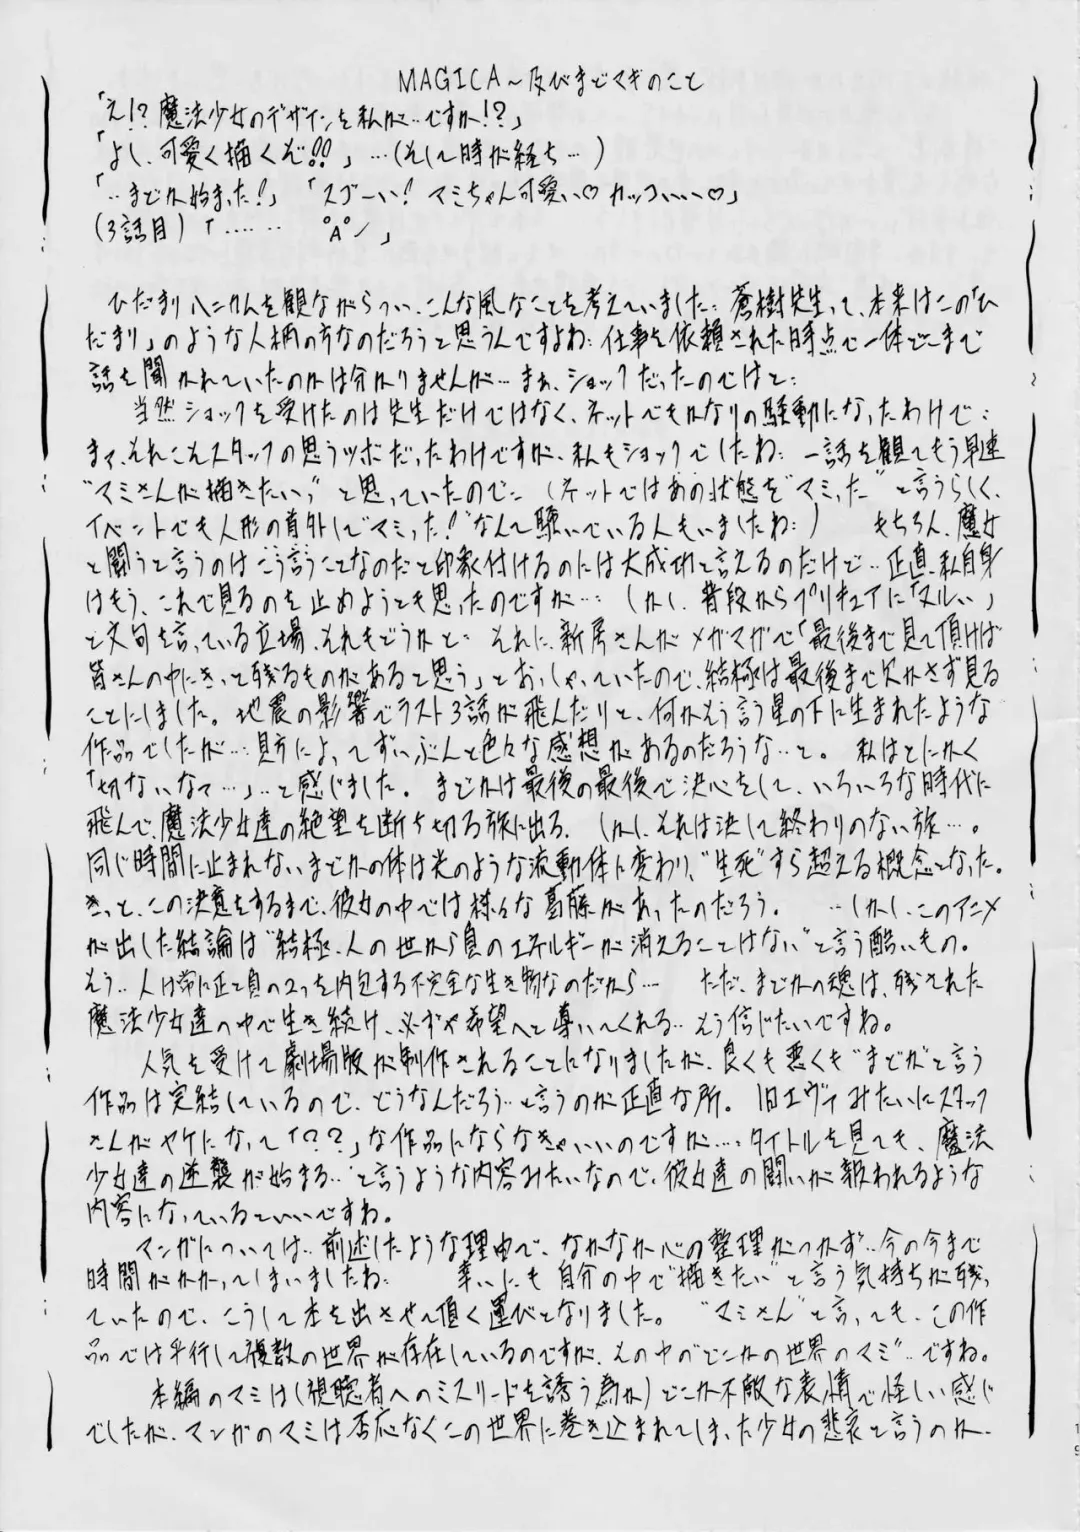 MAGICA～及びまどマギのこと
「え!? 魔法少女のデザインを私が…ですか!?」
「よし、可愛く描くぞ!!」…(そして時が経ち…)
「…まどか始まった!」「スゴーい! マミちゃん可愛い♡カッコいい♡」
(3話目)「…… °A°ノ」
ひだまりハニカムを観ながらつい、こんな風なことを考えていました… 蒼樹先生って、本来はこの「ひ
だまり」のような人柄の方なのだろうと思うんですよね… 仕事を依頼された時点で一体どこまで
話を聞かれていたのかは分かりませんが…まぁ、ショックだったのではと…
当然ショックを受けたのは先生だけではなく、ネットでもかなりの騒動になったわけで…
まァ、それこそスタッフの思うツボだったわけですが、私もショックでしたね… 一話を観てもう早速
"マミさんが描きたいっ"と思っていたので… (ネットではあの状態を"マミった"と言うらしく、
イベントでも人形の首外して"マミった!"なんて騒いでいる人もいましたね…) もちろん、魔女
と闘うと言うのはこう言うことなのだと印象付けるのには大成功と言えるのだけど…正直、私自身
はもう、これで見るのを止めようとも思ったのですが… しかし、普段からプリキュアに「ヌルい」
と文句を言っている立場、それもどうかと… それに、新房さんがメガマガで「最後まで見て頂けば
皆さんの中にきっと残るものがあると思う」とおっしゃっていたので、結極は最後まで欠かさず見る
ことにしました。地震の影響でラスト3話が飛んだりと、何かそう言う星の下に生まれたような
作品でしたが… 見方によってずいぶんと色々な感想があるのだろうな…と。 私はとにかく
「切ないなァ…」…と感じました。 まどかは最後の最後で決心をして、いろいろな時代に
飛んで、魔法少女達の絶望を断ち切る旅に出る。 しかし、それは決して終わりのない旅…。
同じ時間に止まれないまどかの体は光のような流動体に変わり、"生死"すら超える概念となった。
きっと、この決意をするまで、彼女の中では様々な葛藤があったのだろう。 …しかし、このアニメ
が出した結論は"結極、人の世から負のエネルギーが消えることはない"と言う酷いもの。
そう… 人は常に正と負の2つを内包する不完全な生き物なのだから… ただ、まどかの魂は、残された
魔法少女達の中で生き続け、必ずや希望へと導いてくれる…そう信じたいですね。
人気を受けて劇場版が制作されることになりましたが、良くも悪くも"まどか"と言う
作品は完結しているので、どうなんだろう…と言うのが正直な所。 旧エヴァみたいにスタッフ
さんがヤケになって「??」な作品にならなきゃいいのですが… タイトルを見ても、魔法
少女達の逆襲が始まる…と言うような内容みたいなので、彼女達の闘いが報われるような
内容になっているといいですね。
マンガについては…前述したような理由で、なかなか心の整理がつかず…今の今まで
時間がかかってしまいましたね… 幸いにも自分の中で"描きたい"と言う気持ちが残っ
ていたので、こうして本を出させて頂く運びとなりました。 "マミさん"と言っても、この作
品では平行して複数の世界が存在しているのですが、その中の"どこかの世界のマミ"…ですね。
本編のマミは(視聴者へのミスリードを誘う為か)どこか不敵な表情で怪しい感じ
でしたが、マンガのマミは否応なくこの世界に巻き込まれてしまった少女の悲哀と言うのか、
19